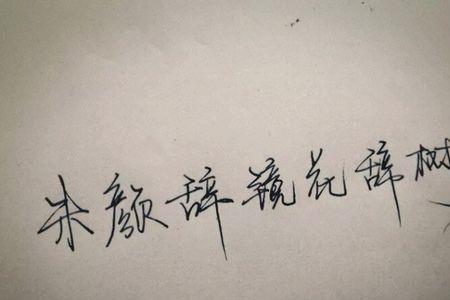 朱颜辞镜花辞树